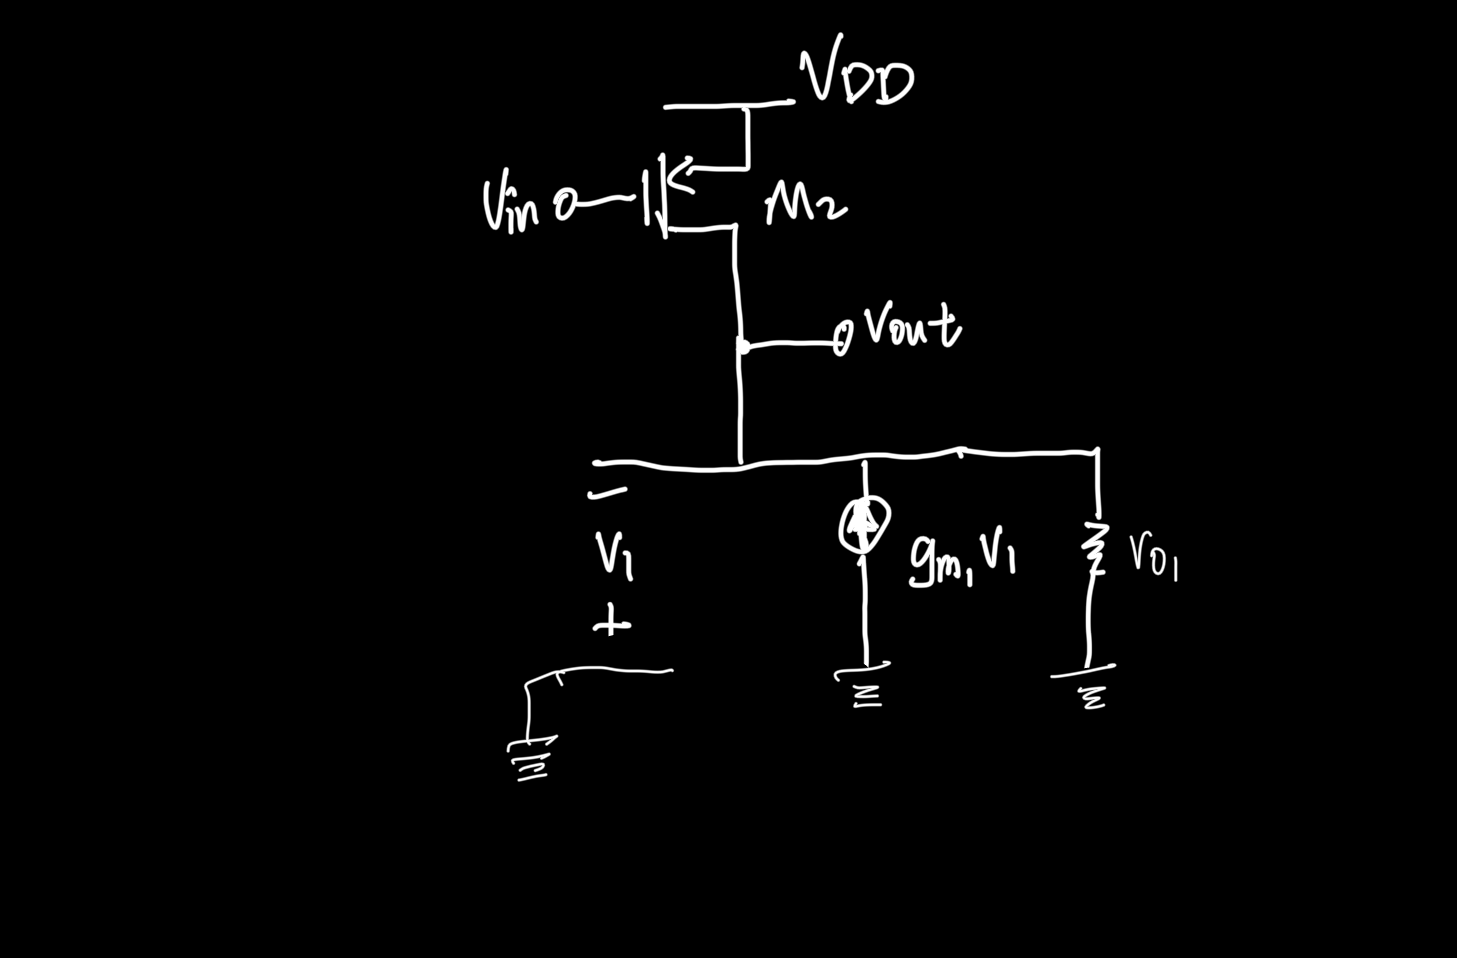 VDD
Vin
M2
Vout
−
V1
+
gm1V1
ro1